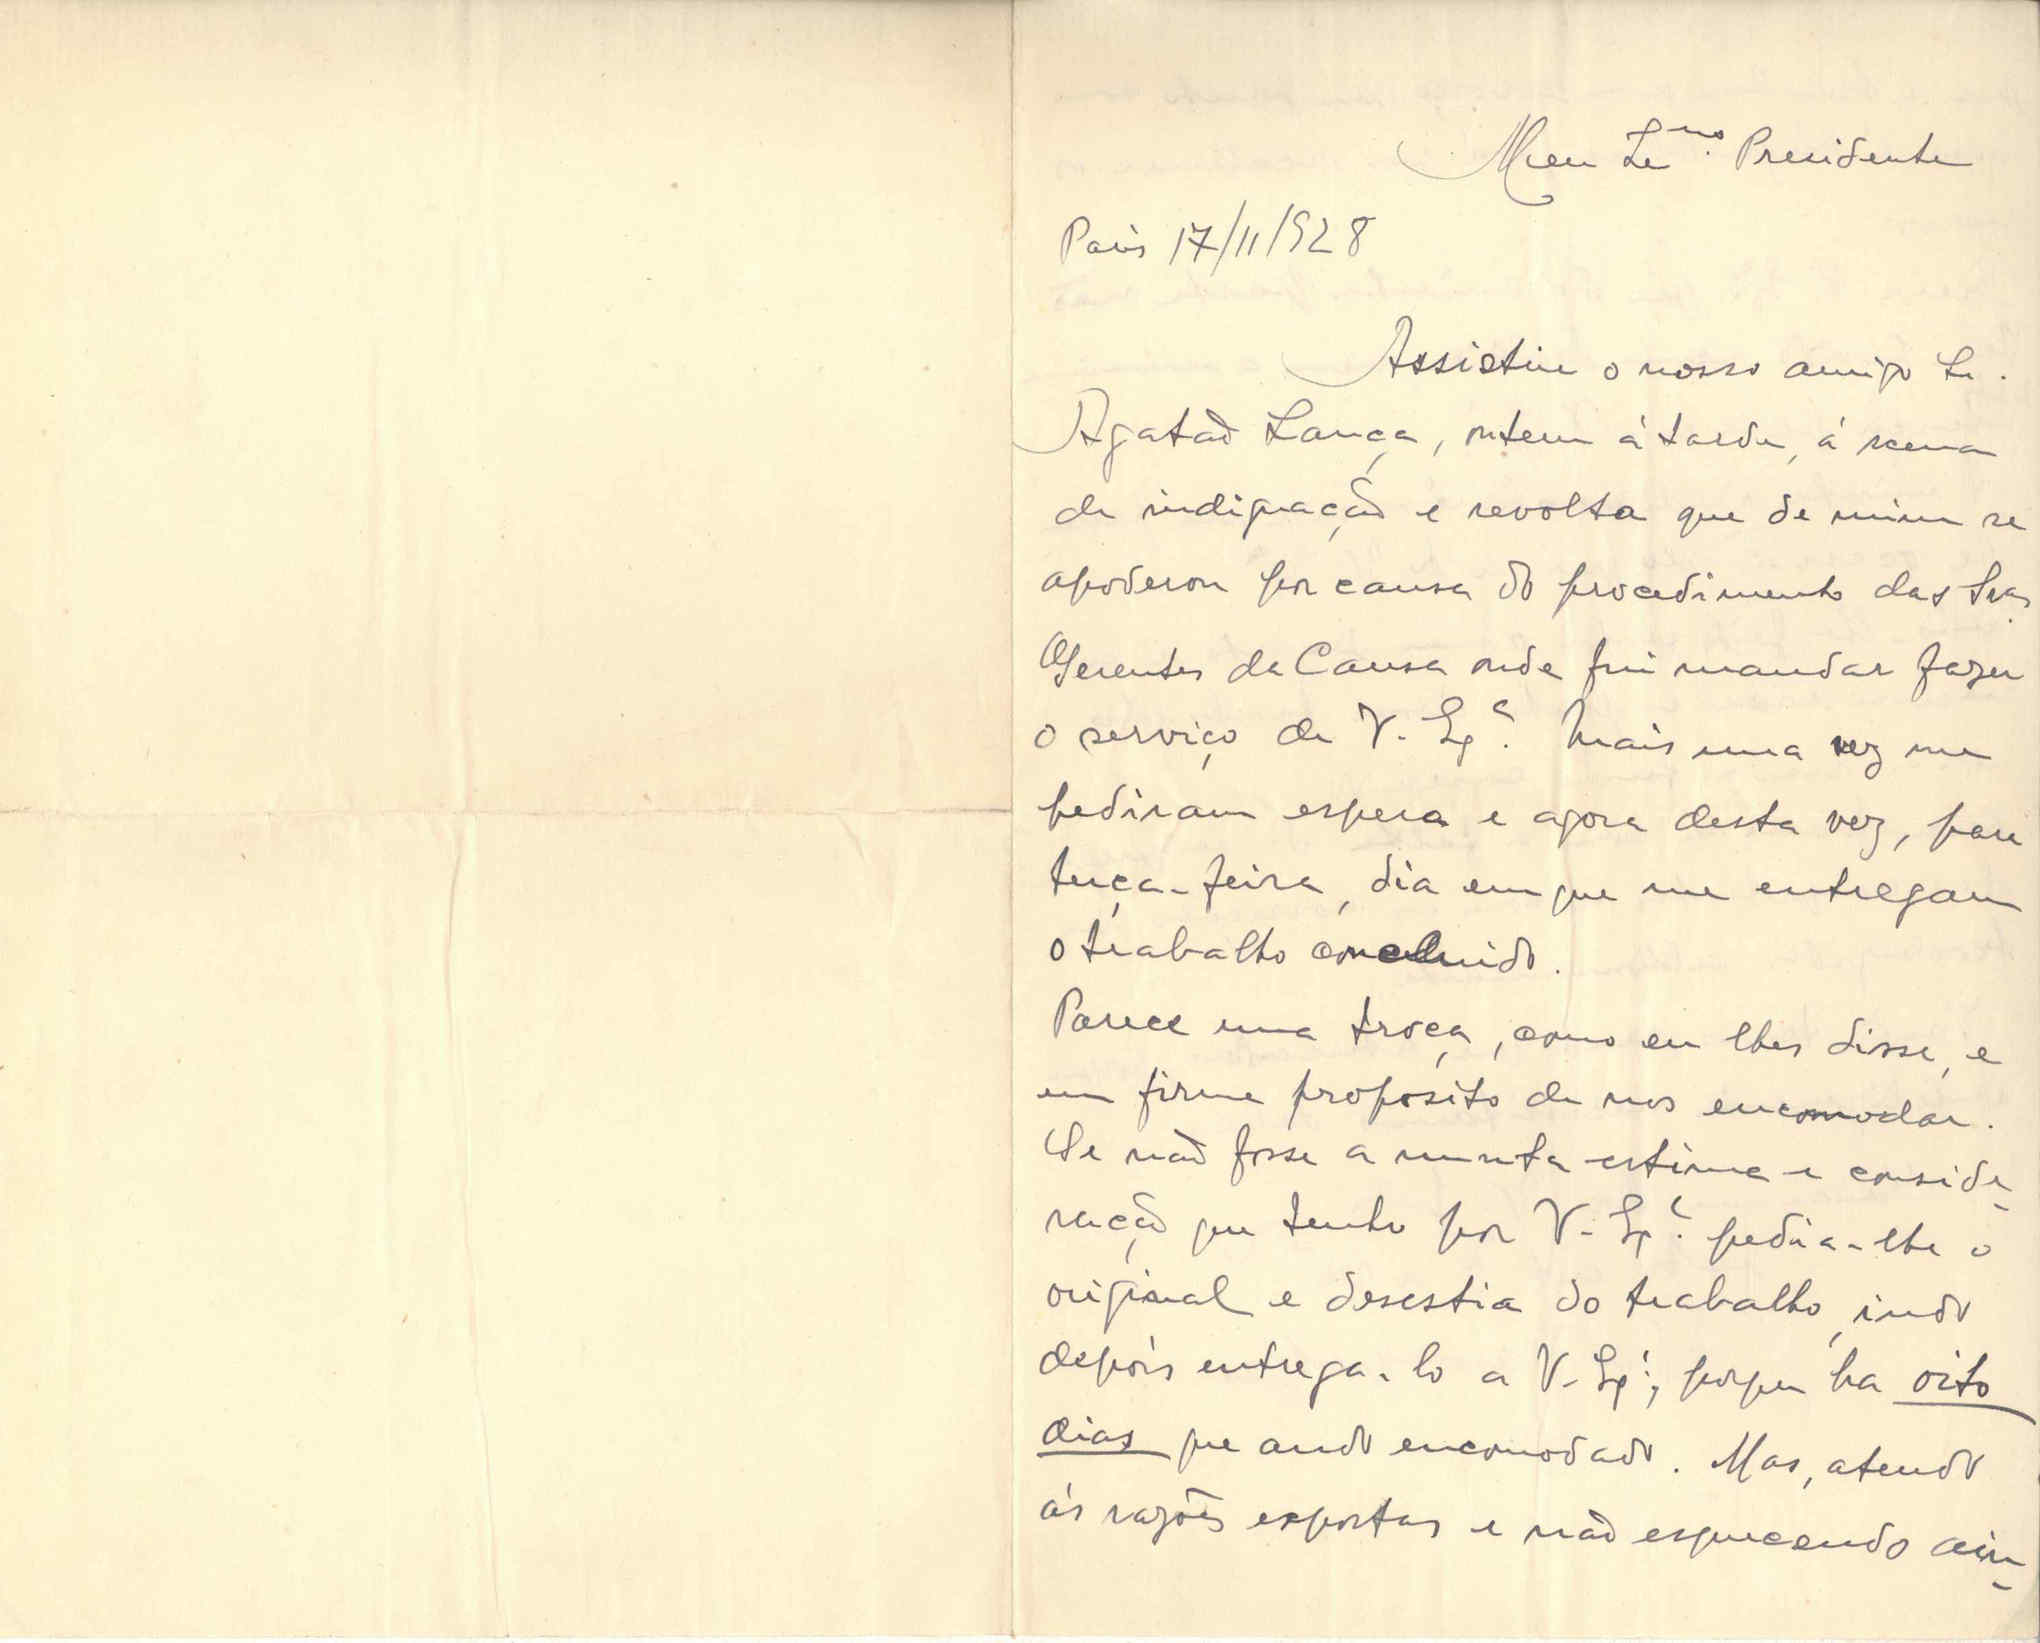 Meu Exmo. Presidente
Paris 17/11/928
Assistiu o nosso amigo Sr.
Agatão Lança, ontem á tarde, á scena
de indignação e revolta que de mim se
apoderou por causa do procedimento das Sras
Gerentes da Causa onde fui mandar fazer
o serviço de V. Exª. Mais uma vez me
pediram espera e agora desta vez, para
terça-feira, dia em que me entregam
o trabalho concluido.
Parece uma troça, como eu lhes disse, e
um firme proposito de nos encomodar.
Se não fosse a muita estima e conside-
ração que tenho por V. Exª. pedia-lhe o
original e desestia do trabalho, indo
depois entrega-lo a V. Exª., porque ha oito
dias que ando encomodado. Mas, atendo
ás razões expostas e não esquecendo ain-